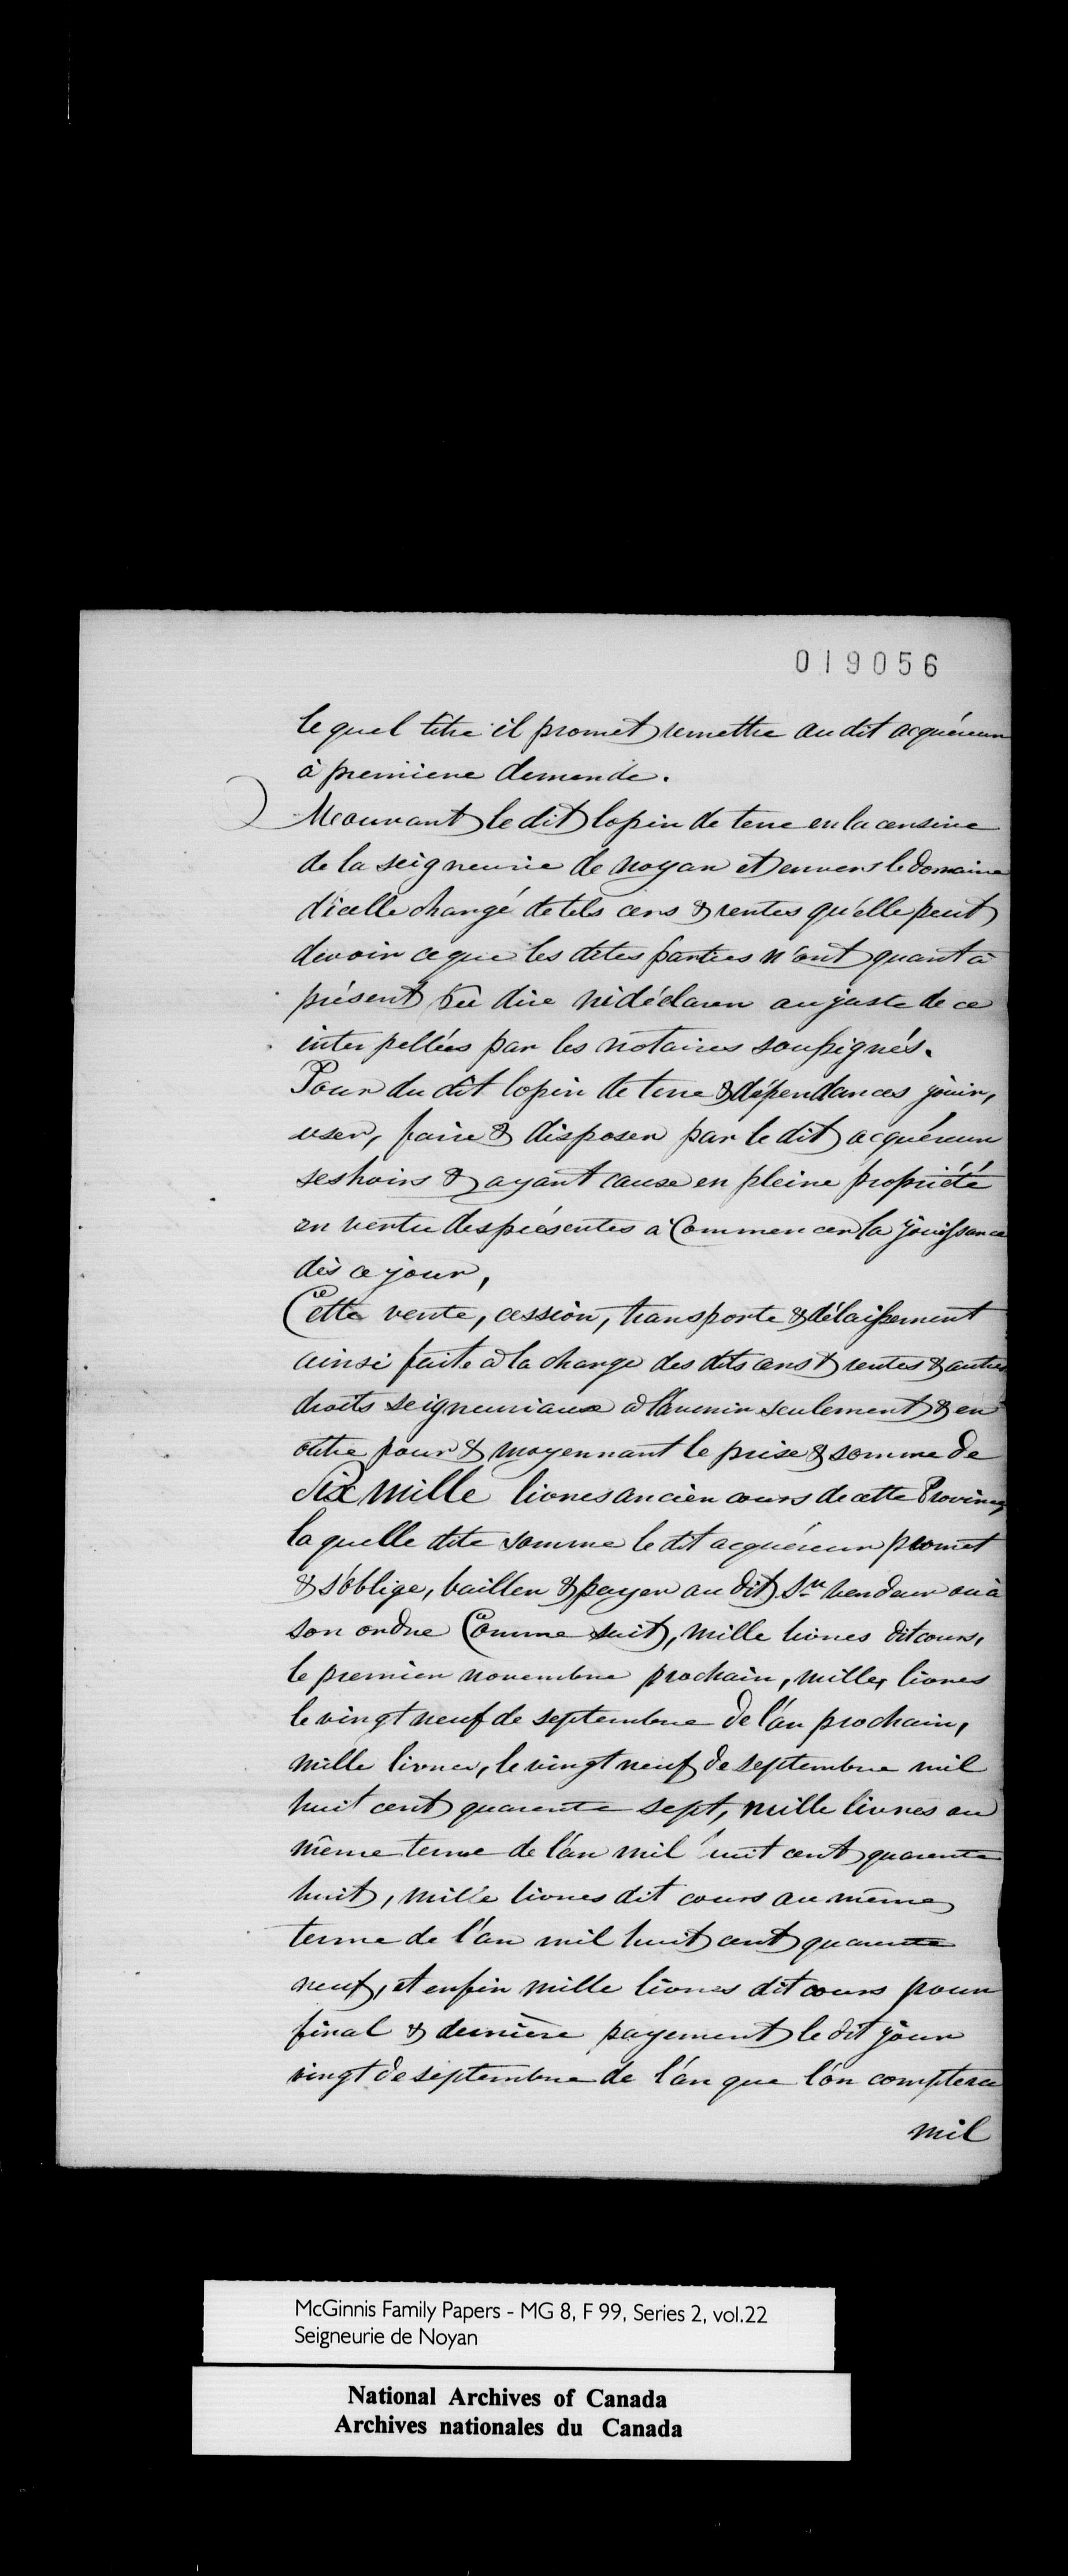 019056
le quel titre il promet remettre au dit acquéreur
à premiere demande.
Mouvant le dit lopin de terre en la censive
de la seigneurie de Noyan et envers le domaine
d'icelle chargé de tels cens & rentes qu'elle peut
devoir ce que les dites parties n'ont quant à
présent su dire ni déclarer au juste de ce
interpellées par les notaires soussignés.
Pour du dit lopin de terre & dépendances jouir,
user, faire & disposer par le dit acquéreur
ses hoirs & ayant cause en pleine propriété
en vertu des présentes à Commencer la jouissance
dès ce jour,
Cette vente, cession, transporte & délaissement
ainsi faite à la charge des dits cens & rentes & autres
droits seigneuriaux à l'avenir seulement & en
outre pour & moyennant le prise & somme de
Six Mille livres ancien cours de cette Province
la quelle dite somme le dit acquéreur promet
& s'oblige, bailler & payer au dit Sr. vendeur ou à
son ordre Comme suit, mille livres dit cours,
le premier novembre prochain, mille, livres
le vingt neuf de septembre de l'an prochain,
mille livres, le vingt neuf de septembre mil
huit cent quarente sept, mille livres au
même terme de l'an mil huit cent quarente
huit, mille livres dit cours au même
terme de l'an mil huit cent quarente
neuf, et enfin mille livres dit cours pour
final & dernière payement le dit jour
vingt de septembre de l'an que l'on comptera
mil
McGinnis Family Papers - MG 8, F 99, Series 2, vol.22
Seigneurie de Noyan
National Archives of Canada
Archives nationales du Canada